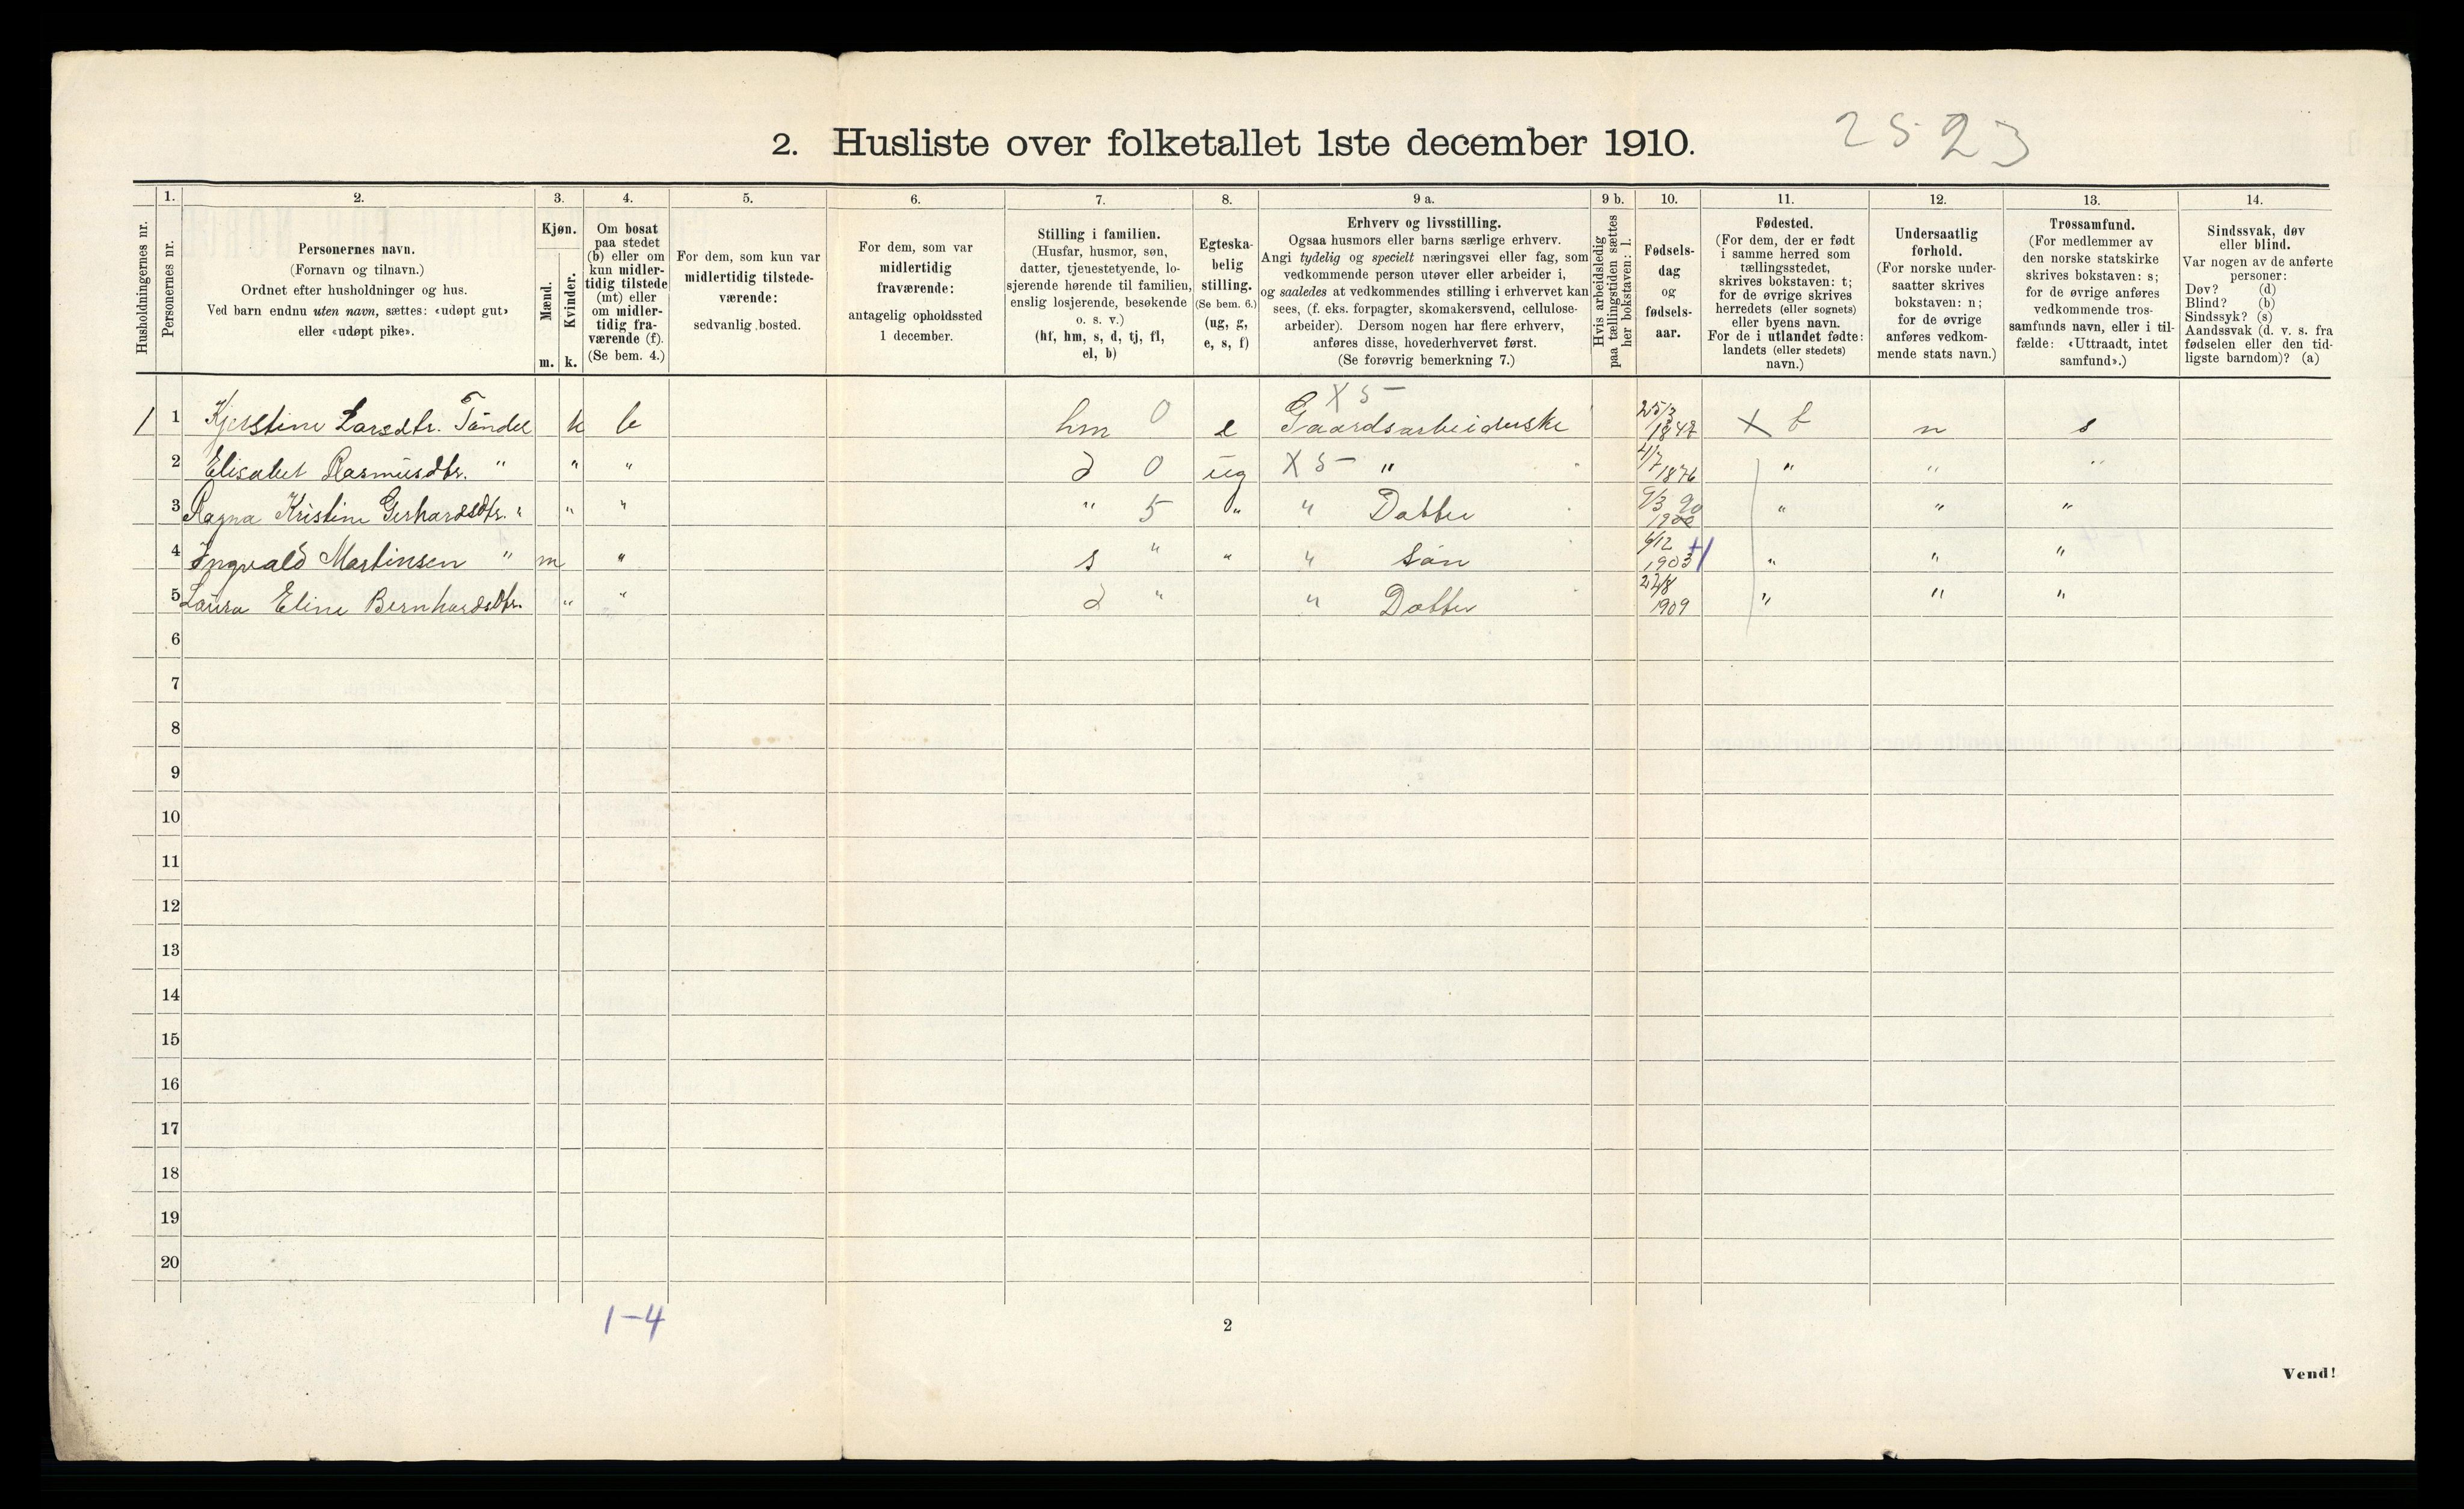 2. Husliste over folketallet 1ste december 1910.
2523
Husholdningernes nr.
1.
Personernes nr.
2.
Personernes navn.
(Fornavn og tilnavn.)
Ordnet efter husholdninger og hus.
Ved barn endnu uten navn, sættes: «udøpt gut»
eller «udøpt pike».
3.
Kjøn.
Mænd.
m.
Kvinder.
k.
4.
Om bosat
paa stedet
(b) eller om
kun midler-
tidig tilstede
(mt) eller
om midler-
tidig fra-
værende (f).
(Se bem. 4.)
5.
For dem, som kun var
midlertidig tilstede-
værende:
sedvanlig bosted.
6.
For dem, som var
midlertidig
fraværende:
antagelig opholdssted
1 december.
7.
Stilling i familien.
(Husfar, husmor, søn,
datter, tjenestetyende, lo-
sjerende hørende til familien,
enslig losjerende, besøkende
o. s. v.)
(hf, hm, s, d, tj, fl,
el, b)
8.
Egteska-
belig
stilling.
(Se bem. 6.)
(ug, g,
e, s, f)
9 a.
Erhverv og livsstilling.
Ogsaa husmors eller barns særlige erhverv.
Angi tydelig og specielt næringsvei eller fag, som
vedkommende person utøver eller arbeider i,
og saaledes at vedkommendes stilling i erhvervet kan
sees, (f. eks. forpagter, skomakersvend, cellulose-
arbeider). Dersom nogen har flere erhverv,
anføres disse, hovederhvervet først.
(Se forøvrig bemerkning 7.)
9 b.
Hvis arbeidsledig
paa tællingstiden sættes
her bokstaven: l.
10.
Fødsels-
dag
og
fødsels-
aar.
11.
Fødested.
(For dem, der er født
i samme herred som
tællingsstedet,
skrives bokstaven: t;
for de øvrige skrives
herredets (eller sognets)
eller byens navn.
For de i utlandet fødte:
landets (eller stedets)
navn.)
12.
Undersaatlig
forhold.
(For norske under-
saatter skrives
bokstaven: n;
for de øvrige
anføres vedkom-
mende stats navn.)
13.
Trossamfund.
(For medlemmer av
den norske statskirke
skrives bokstaven: s;
for de øvrige anføres
vedkommende tros-
samfunds navn, eller i til-
fælde: «Uttraadt, intet
samfund».)
14.
Sindssvak, døv
eller blind.
Var nogen av de anførte
personer:
Døv? (d)
Blind? (b)
Sindssyk? (s)
Aandssvak (d. v. s. fra
fødselen eller den tid-
ligste barndom)? (a)
X 5 -
1 1 Kjerstine Larsdtr. Tändel k b hm 0 e Gaardsarbeiderske 25/3 X t n s
2 Elisabet Rasmusdtr. " " " d 0 ug X 5 - " 4/7 1876 " " "
3 Ragna Kristine Gerhardsdtr. " " " " 5 " " Datter 9/3 90 1900 " " "
4 Ingvald Martinsen " m " s " " " Sön 6/12 1903 " " "
5 Laura Eline Bernhardsdtr. " " d " " Datter 22/8 1909 " " "
6
7
8
9
10
11
12
13
14
15
16
17
18
19
20
1-4
2
Vend!